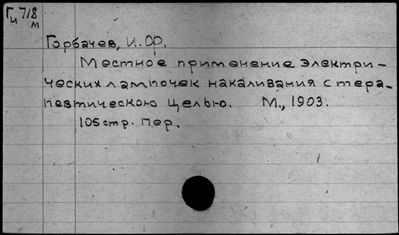 Ги 718
м
Горбачев, И.Ф.
Местное применение электри-
ческих лампочек накаливания с тера-
певтическою целью. М., 1903.
105 стр. Пер.